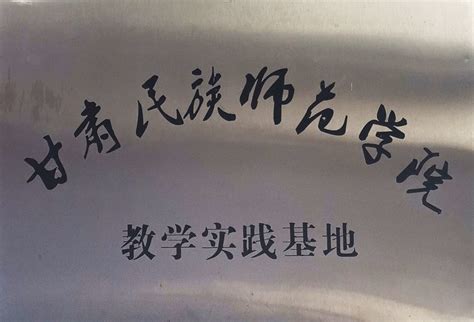 甘肃民族师范学院
教学实践基地